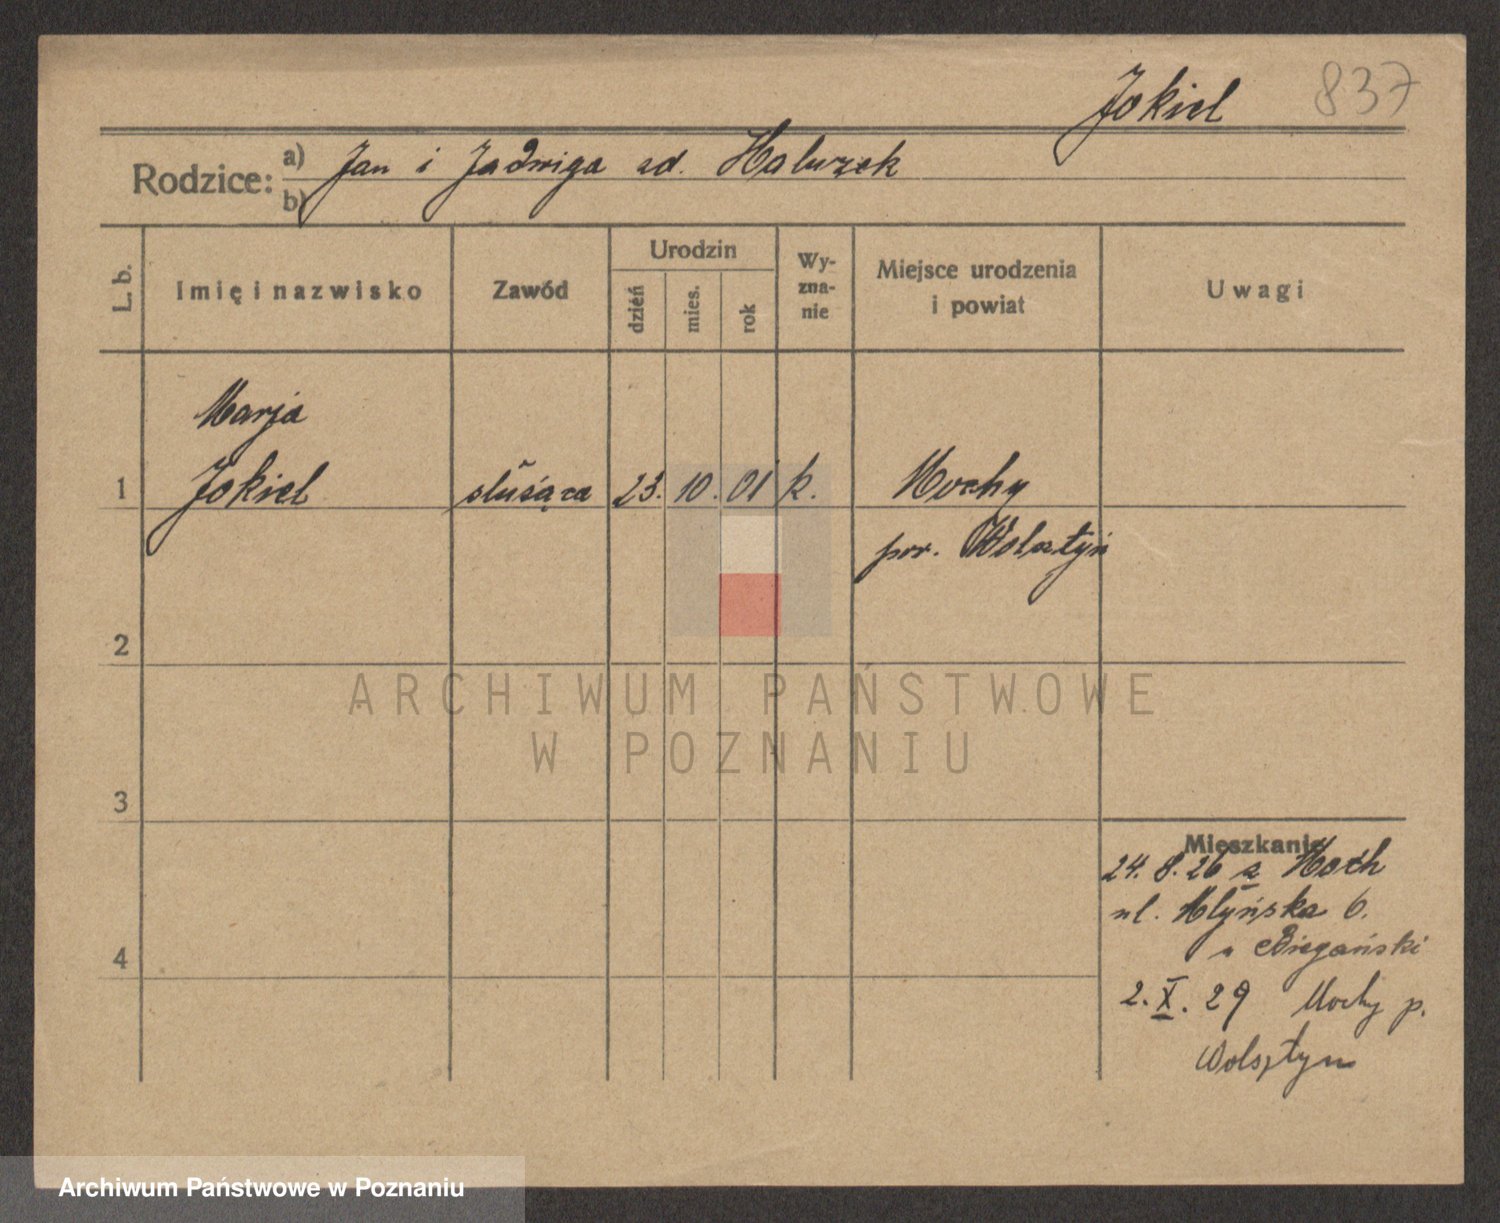 Jokiel 837
Rodzice: a) Jan i Jadwiga zd. Halurzek
b)
L. b. Imię i nazwisko Zawód Urodzin dzień mies. rok Wy-zna-nie Miejsce urodzenia i powiat Uwagi
Marja
1 Jokiel służąca 23. 10. 01 k. Mochy
pow. Wolsztyn
2
ARCHIWUM PAŃSTWOWE
W POZNANIU
3
Mieszkanie
24. 8. 26 z Moch
ul. Młyńska 6.
u Biegański
4
2. X. 29 Mochy p.
Wolsztyn
Archiwum Państwowe w Poznaniu